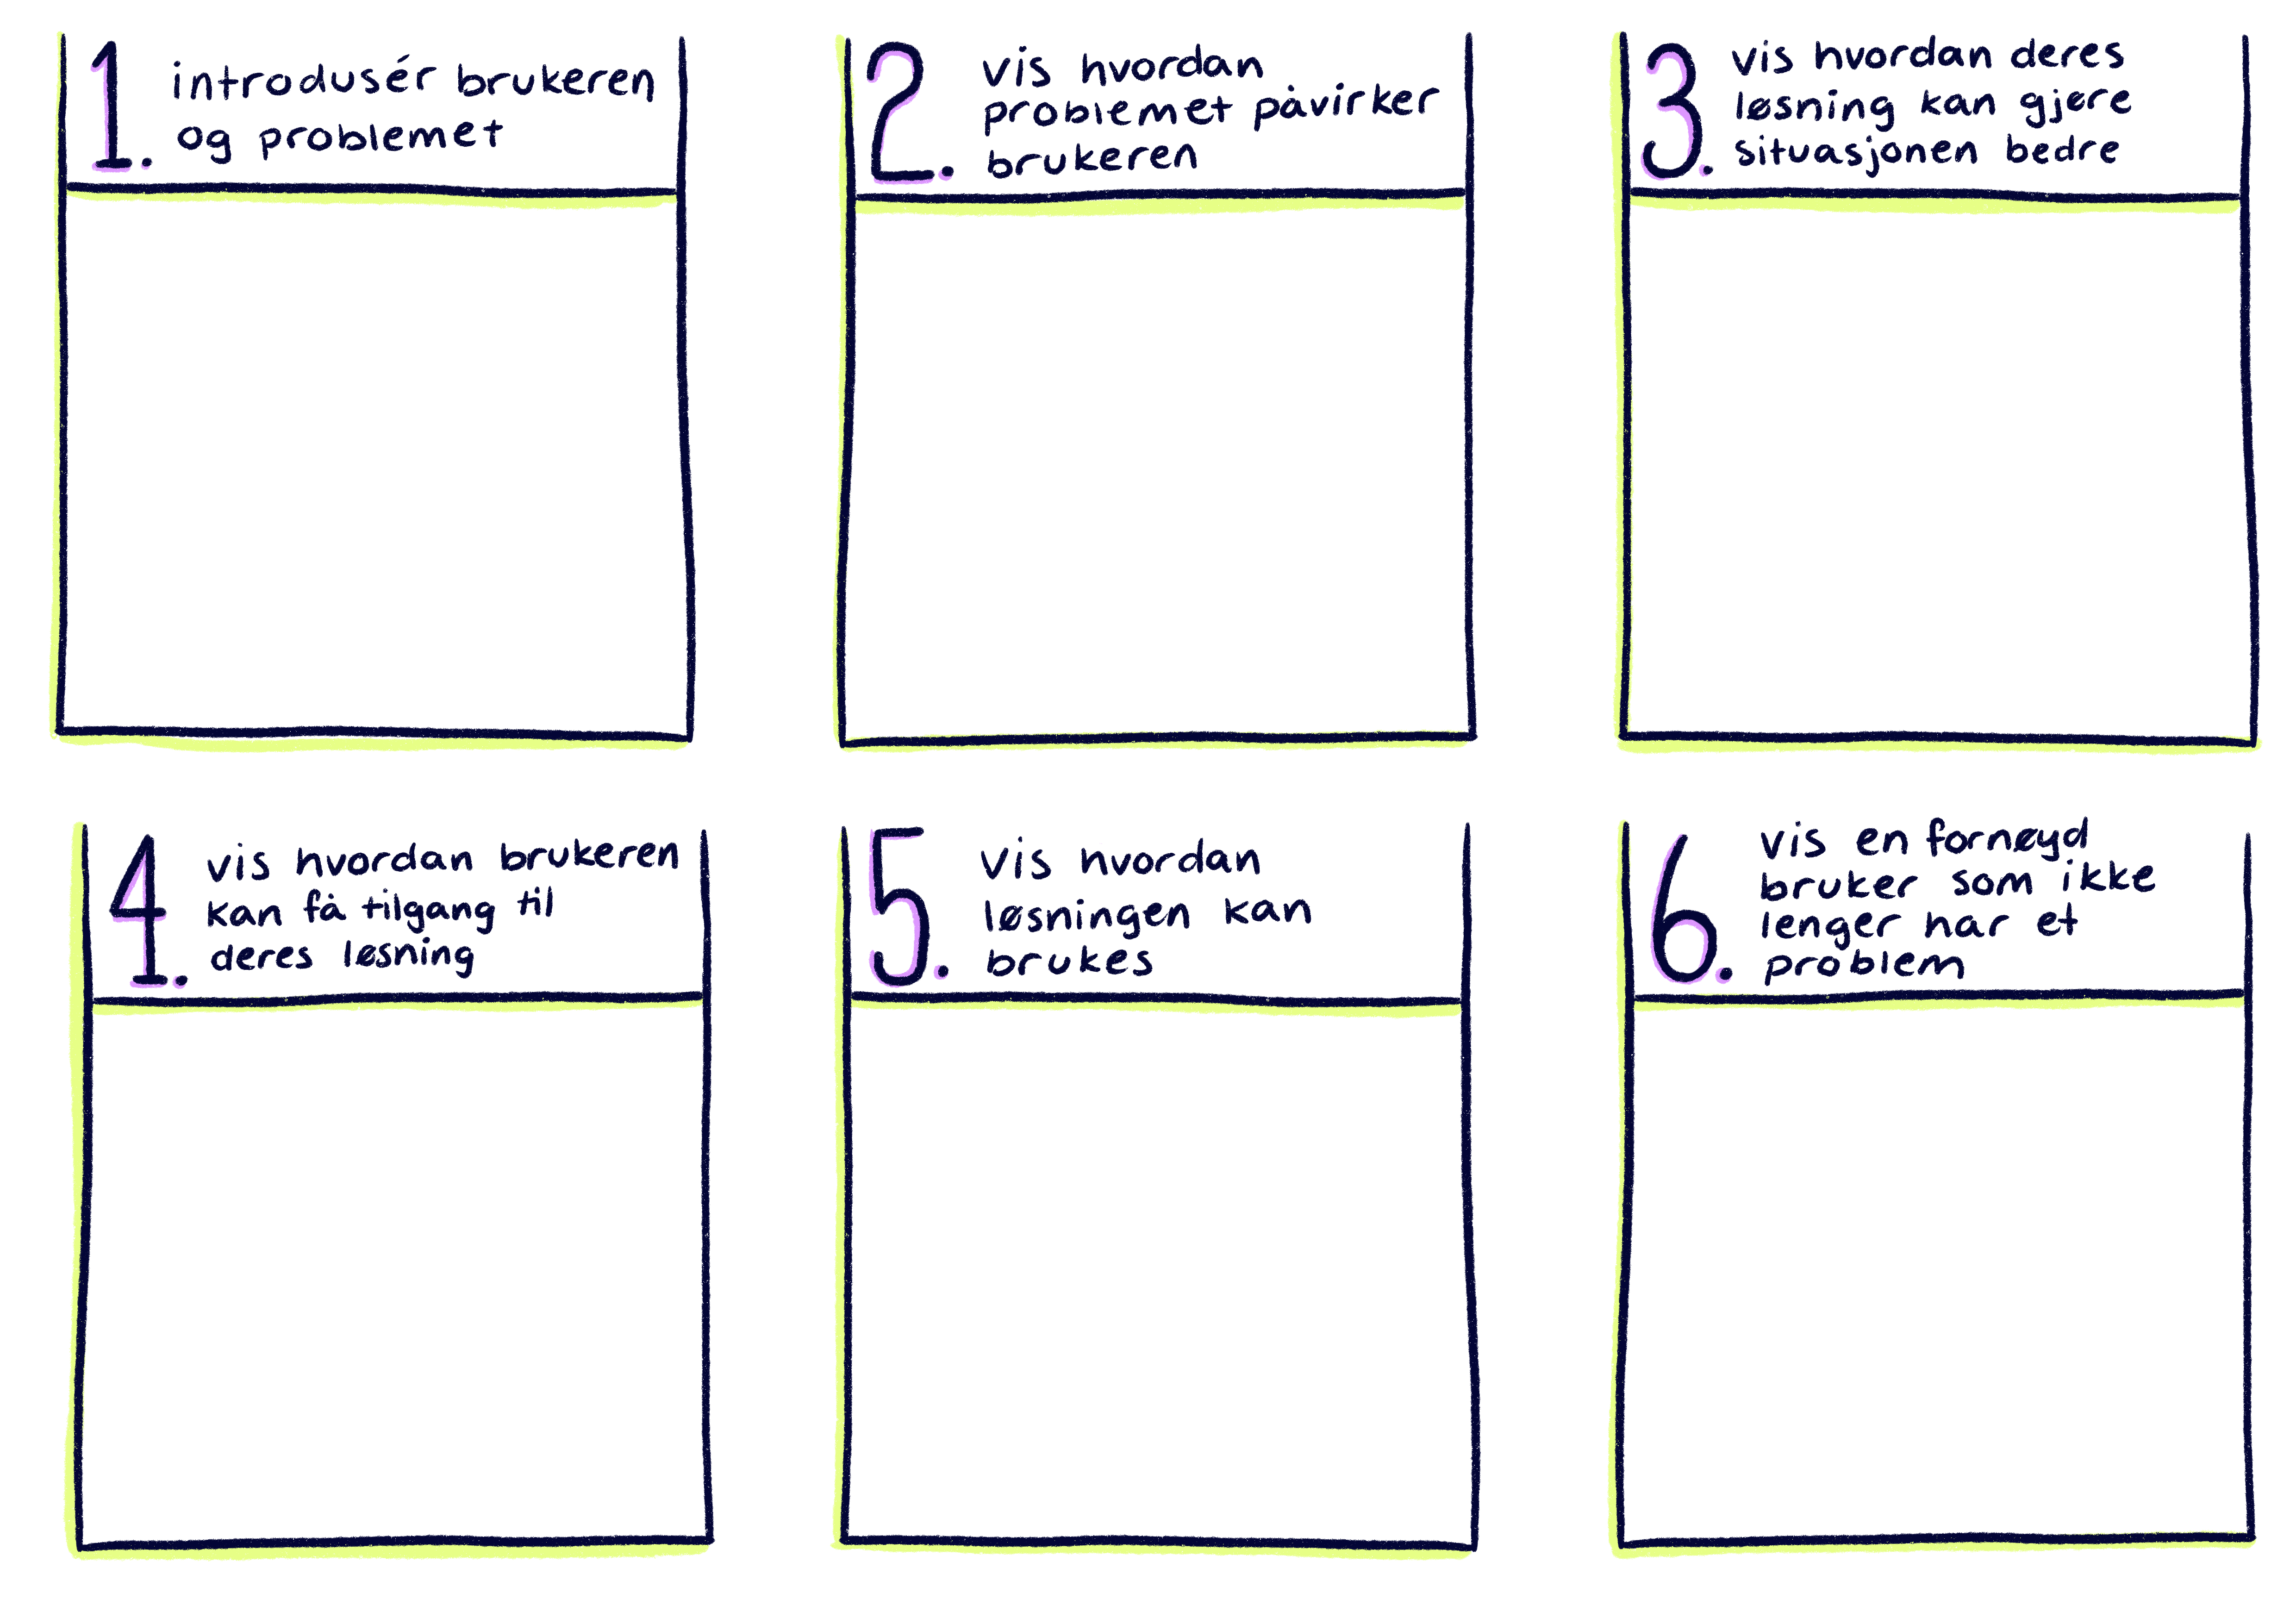 1. introdusér brukeren
og problemet
2. vis hvordan
problemet påvirker
brukeren
3. vis hvordan deres
løsning kan gjøre
situasjonen bedre
4. vis hvordan brukeren
kan få tilgang til
deres løsning
5. vis hvordan
løsningen kan
brukes
6. vis en fornøyd
bruker som ikke
lenger har et
problem